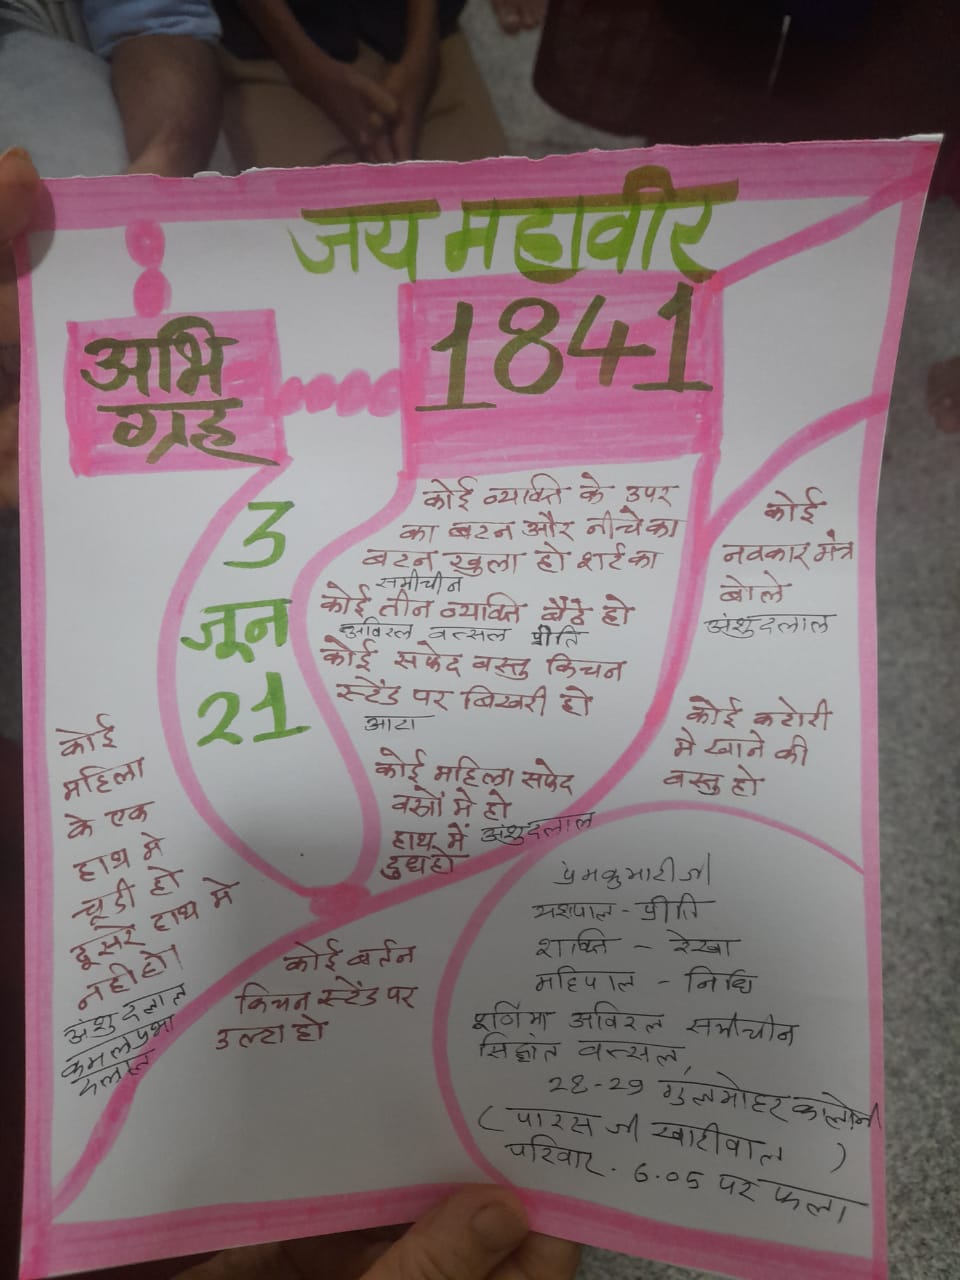 जय महावीर
1841
अभि
ग्रह
3
जून
21
कोई व्यक्ति के उपर
का बटन और नीचे का
बटन खुला हो शर्ट का
समीचीन
कोई तीन व्यक्ति बैठे हो
अविरल वत्सल प्रीति
कोई सफेद वस्तु किचन
स्टैंड पर बिखरी हो
आटा
कोई महिला सफेद
वस्त्रों मे हो
हाथ में अंशु दलाल
दुध हो
कोई
नवकार मंत्र
बोले
अंशु दलाल
कोई कटोरी
मे खाने की
वस्तु हो
कोई
महिला
के एक
हाथ मे
चूडी हो
दूसरे हाथ मे
नही हो।
अंशु दलाल
कमलप्रभा
दलाल
कोई बर्तन
किचन स्टैंड पर
उल्टा हो
प्रेमकुमारी जी
यशपाल - प्रीति
शक्ति - रेखा
महिपाल - निधि
अविरल समीचीन
वत्सल,
28-29 गुलमोहर कालोनी
(पारस जी खाटीवाल)
परिवार. 6.05 पर फला